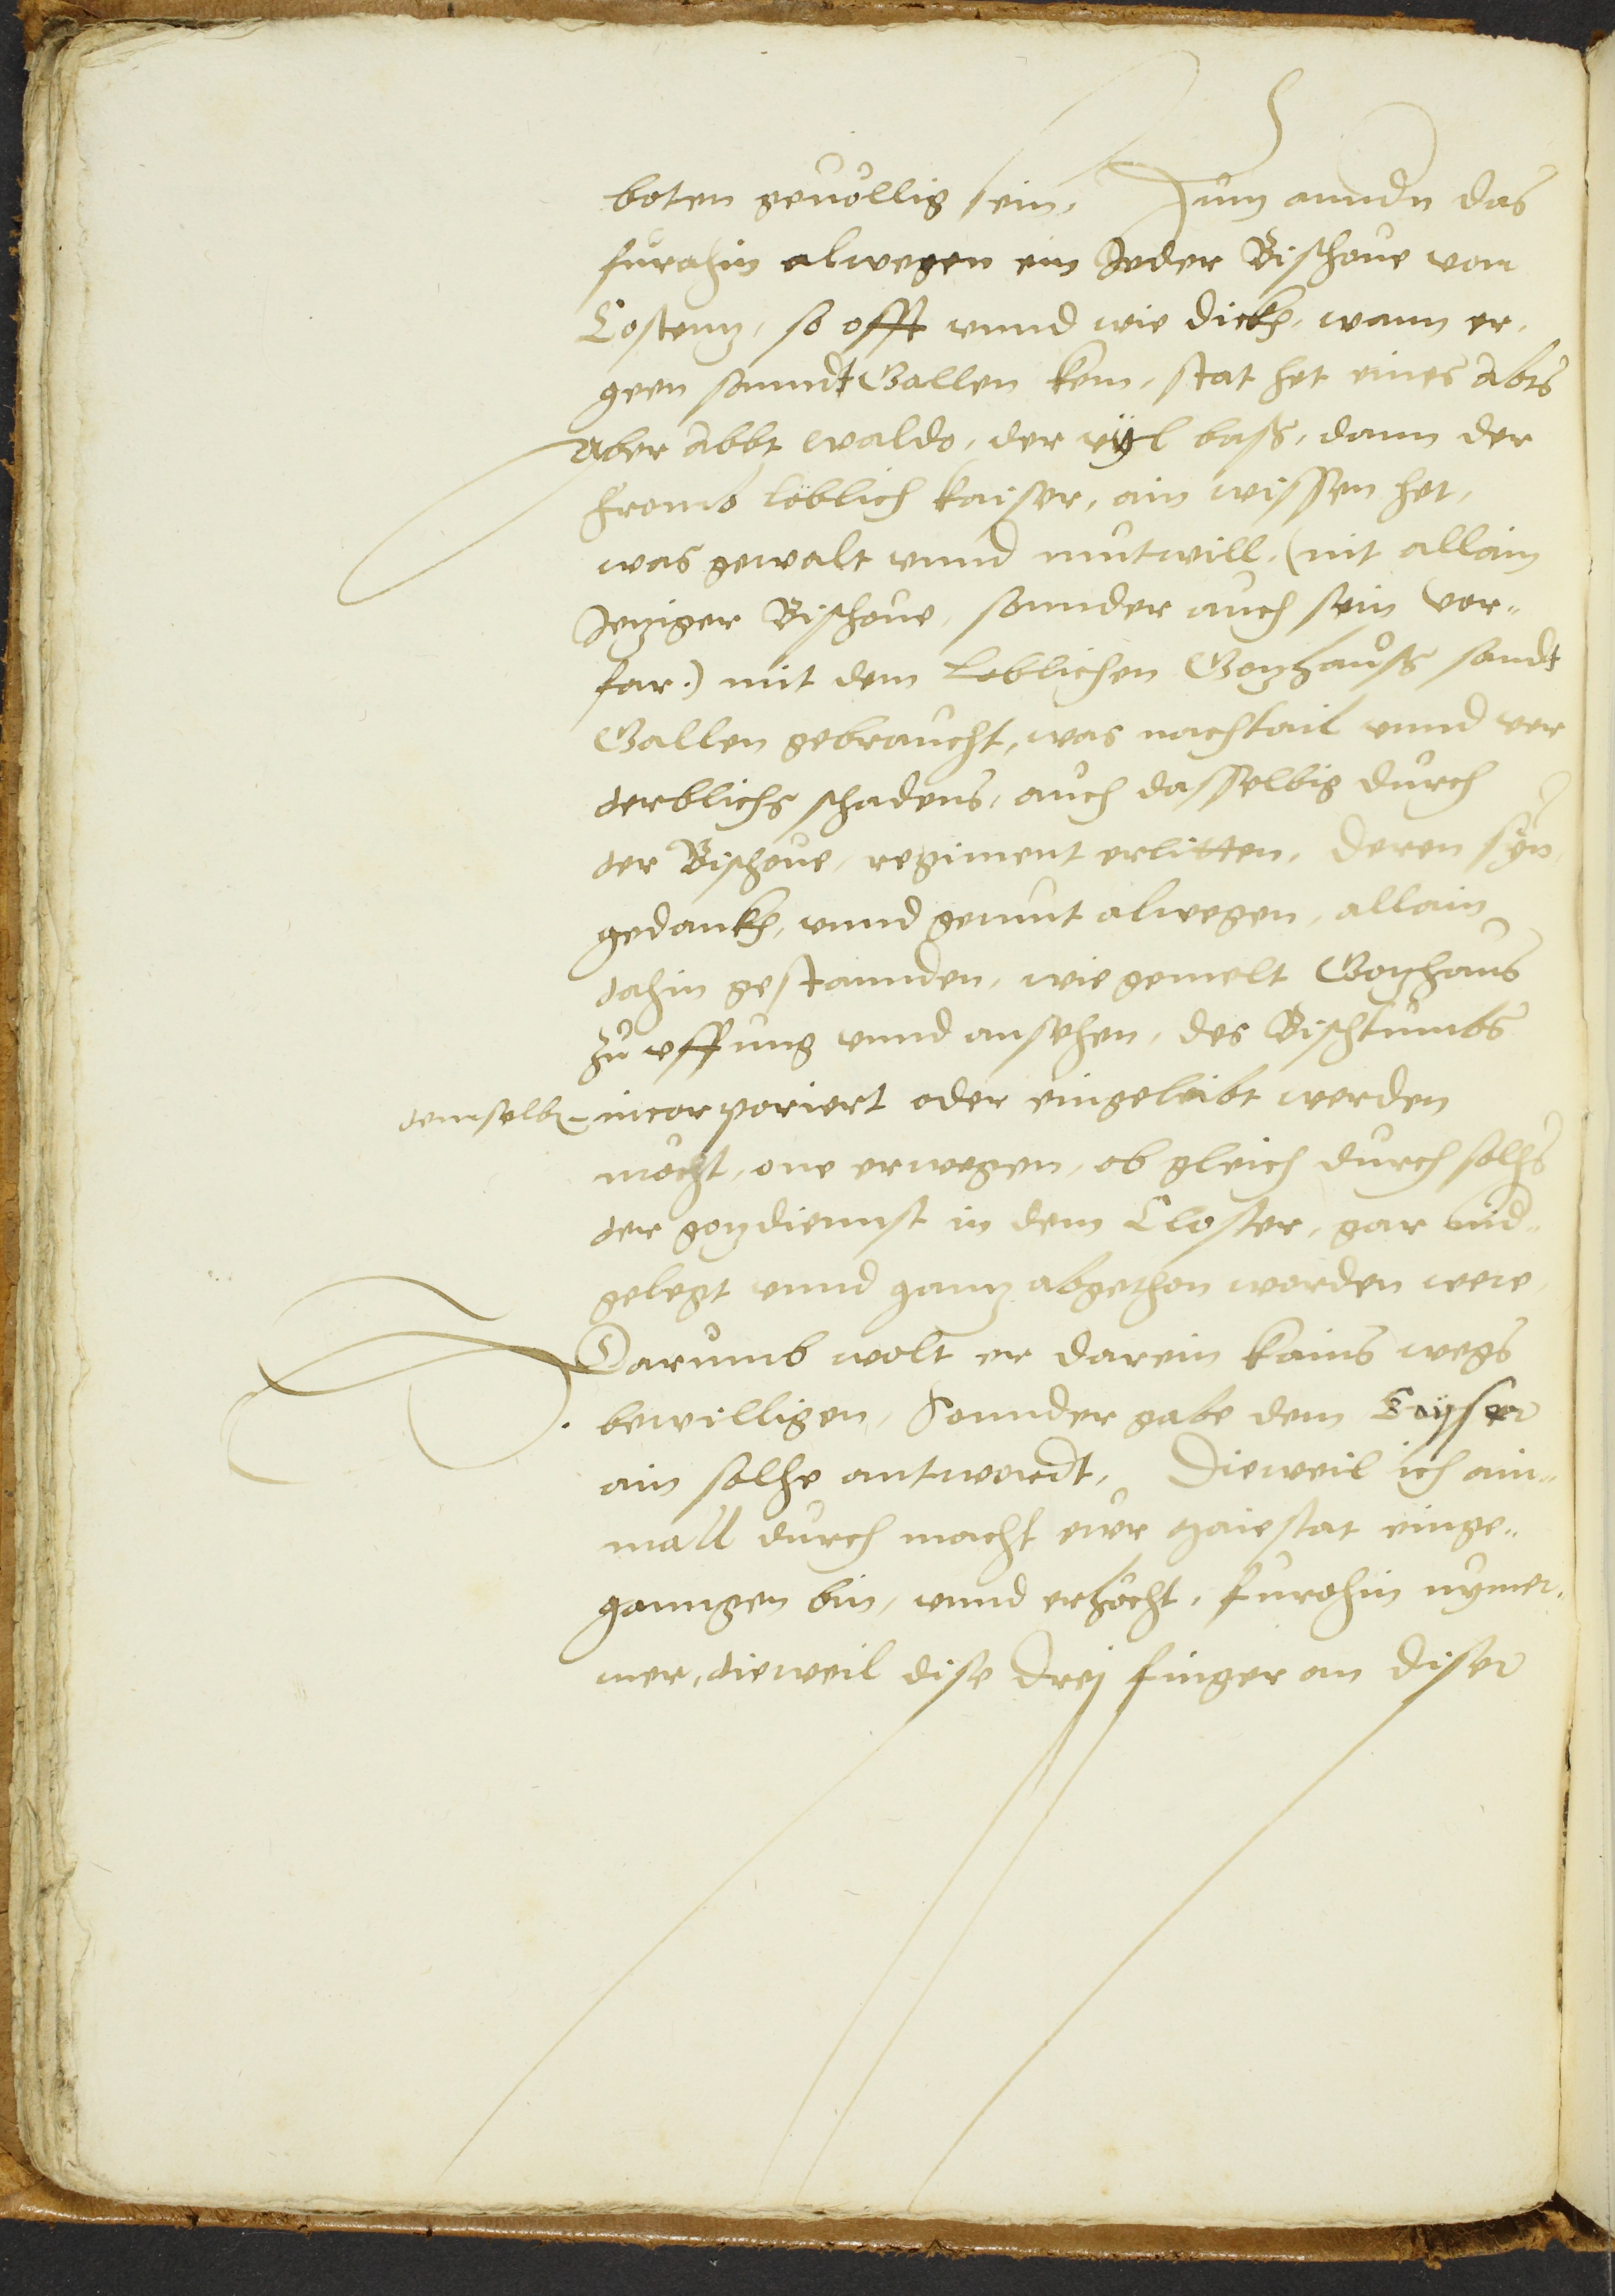 boten geuöllig sein, Zum anndn das
furahin alwegen ein Jeder Bischoue von
Costenz, so offt unnd wie dickh, wann er,
geen sanndt Gallen kem, stat het eines Abts
Aber Abbt Waldo, der vÿl baß, dann der
from löblich kaiser, ain wissen het,
was gewalt unnd mutwill, (nit allain
Jeziger Bischoue, sonnder auch sein vor„
far.) mit dem Loblichen Gozhauß sandt
Gallen gebraucht, was nachtail unnd ver
derblichs schadens, auch dasselbig durch
der Bischoue, regiment erlitten, deren syn
gedankh, unnd gemut alwegen, allain
dahin gestannden, wie gemelt Gozhaus
zu uffung unnd ansehen, des Bischtumbs
demselbn incorporiert oder eingeleibt werden
möcht, one erwegen, ob gleich durch solhs
der gozdiennst in dem Closter, gar nid„
gelegt unnd ganz abgethon worden were,
Darumb wolt er darein kains wegs
bewilligen, Sonnder gabe dem Keyser
ain solhe antwordt, Dieweil ich ain„
mall durch macht ewr Maiestat einge„
ganngen bin, unnd erhöcht, furohin nymer,
mer, dieweil dise drej finger an diser